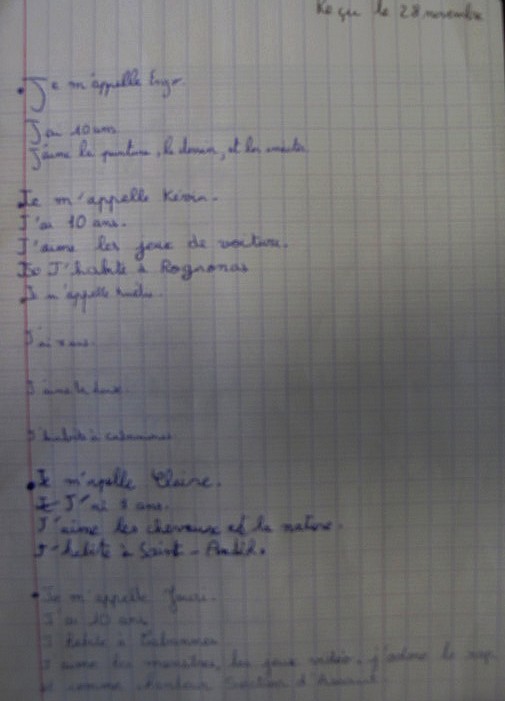 Reçu le 28 novembre
Je m'appelle Enzo.
J'ai 10 ans
J'aime la peinture, le dessin, et les
Je m'appelle Kévin.
J'ai 10 ans.
J'aime les jeux de voiture.
J'habite à Rognonas
Je m'appelle
J'ai ans
J'aime la
J'habite à Cabannes
Je m'apelle Claire.
J'ai ans.
J'aime les chevaux et la nature.
J'habite à Saint-Andiol.
Je m'appelle
J'ai 10 ans
J'habite à Cabannes
J'aime les monstres, les jeux vidéo, j'adore le rap
et comme chanteur Section d'Assaut.